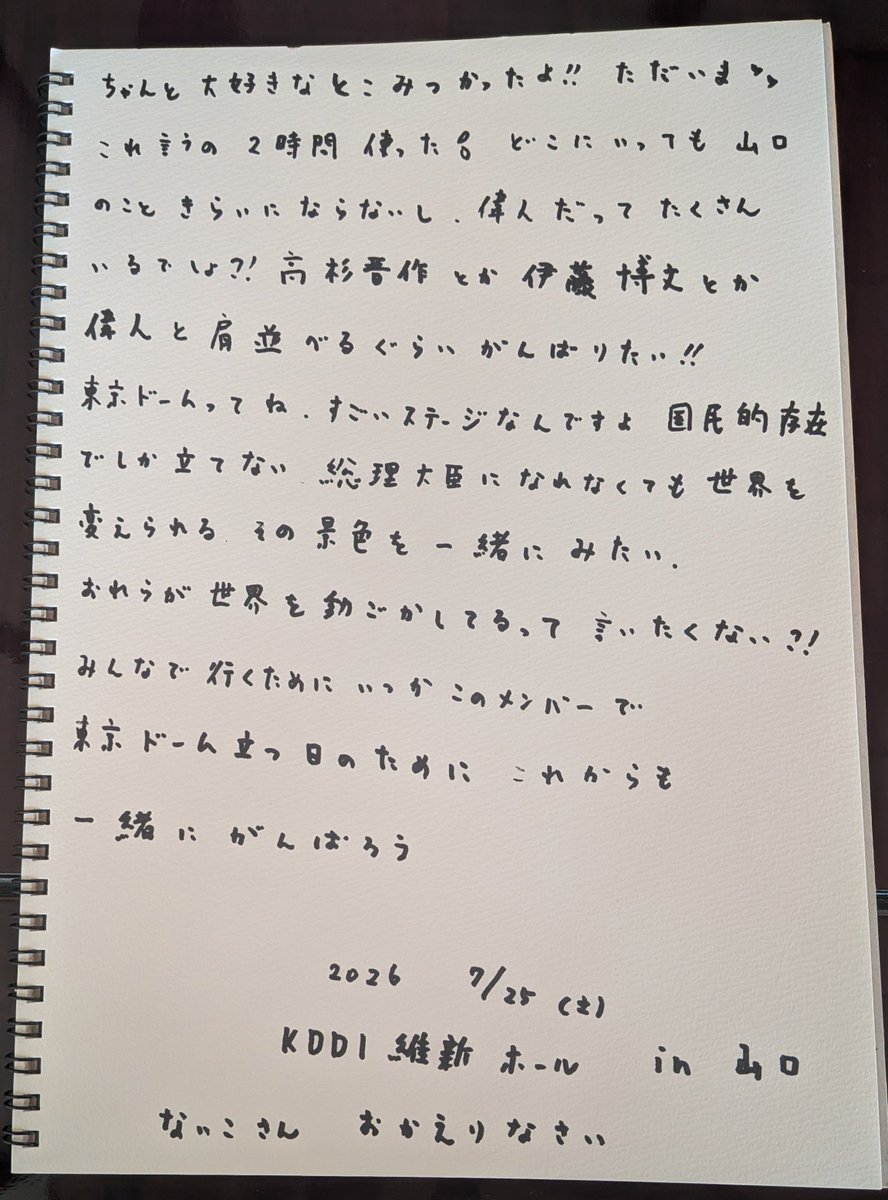 ちゃんと 大好きな とこ みつかったよ!! ただいま
これ言うの 2時間 使った。 どこにいっても 山口
のこと きらいにならないし、偉人だって たくさん
いるでしょ?! 高杉晋作とか 伊藤博文とか
偉人と肩並べるぐらい がんばりたい!!
東京ドームってね、すごいステージなんですよ 国民的存在
でしか立てない 総理大臣になれなくても 世界を
変えられる その景色を一緒に みたい、
おれらが世界を動ごかしてるって 言いたくない?!
みんなで 行くために いつか このメンバーで
東京ドーム立つ日のために これからも
一緒に がんばろう
2026 7/25 (土)
KDDI維新ホール in 山口
ないこさん おかえりなさい